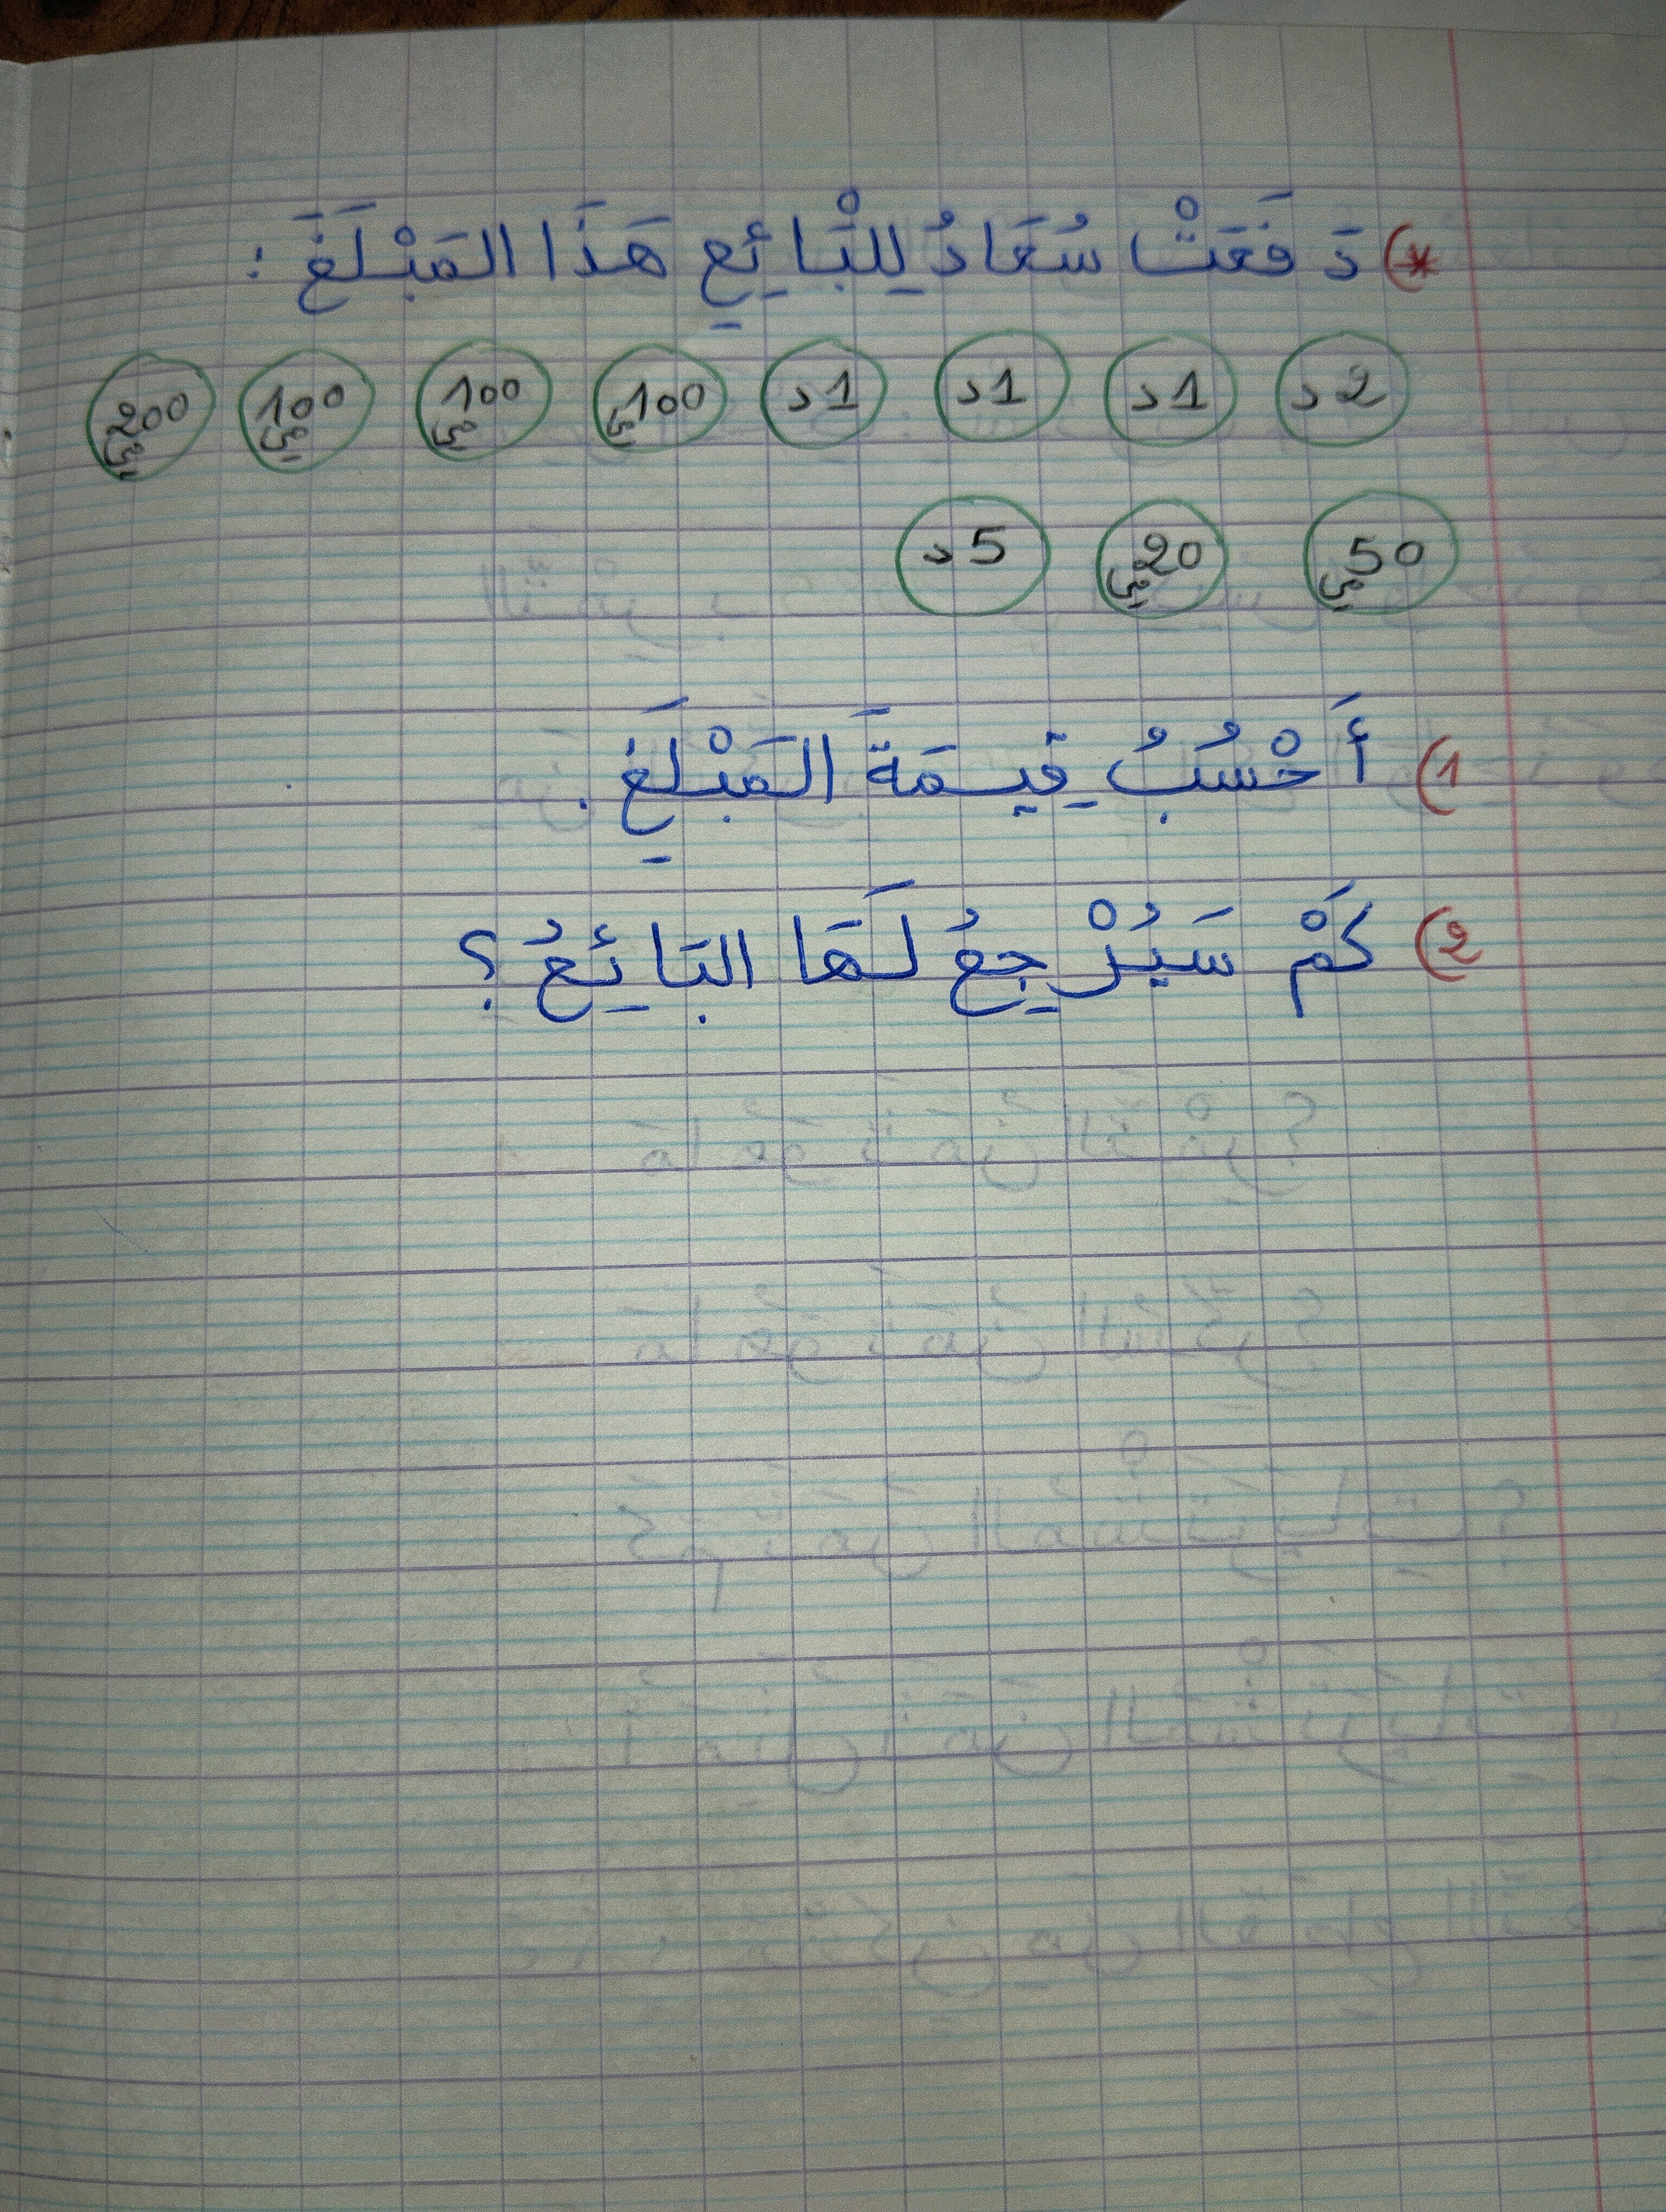 *) دَفَعَتْ سُعَادُ لِلْبَائِعِ هَذَا المَبْلَغَ :
2د 1د 1د 1د 100مي 100مي 100مي 200مي
50مي 20مي 5د
1) أَحْسُبُ قِيمَةَ المَبْلَغِ .
2) كَمْ سَيُرْجِعُ لَهَا البَائِعُ ؟